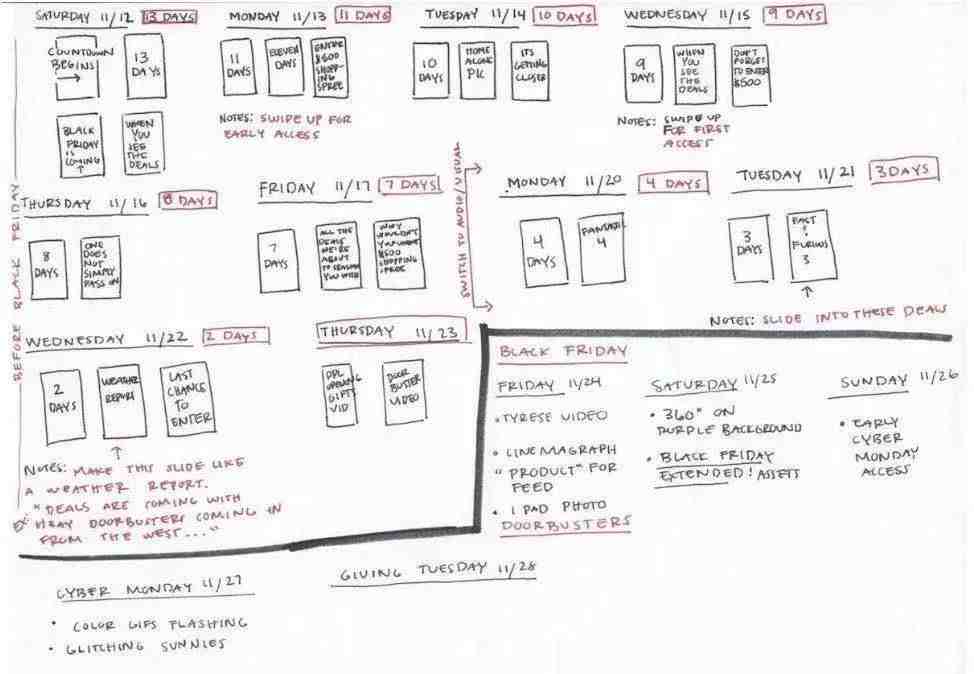 SATURDAY 11/12 13 DAYS
COUNTDOWN
BEGINS
13
DAYS
BLACK
FRIDAY
IS
COMING
WHEN
YOU
SEE
THE
DEALS
MONDAY 11/13 11 DAYS
11
DAYS
ELEVEN
DAYS
ENTER
$500
SHOPP-
ING
SPREE
NOTES: SWIPE UP FOR
EARLY ACCESS
TUESDAY 11/14 10 DAYS
10
DAYS
HOME
ALONE
PIC
ITS
GETTING
CLOSER
WEDNESDAY 11/15 9 DAYS
9
DAYS
WHEN
YOU
SEE
THE
DEALS
DON'T
FORGET
TO ENTER
$500
NOTES: SWIPE UP
FOR FIRST
ACCESS
BEFORE BLACK FRIDAY
THURSDAY 11/16 8 DAYS
8
DAYS
ONE
DOES
NOT
SIMPLY
PASS ON
FRIDAY 11/17 7 DAYS
7
DAYS
ALL THE
DEALS
WE'RE
ABOUT
TO
YOU WITH
WHY
WOULDN'T
YOU WANT
$500
SHOPPING
SPREE
SWITCH TO AUDIO/VISUAL
MONDAY 11/20 4 DAYS
4
DAYS
FANTASTIC
4
TUESDAY 11/21 3 DAYS
3
DAYS
FAST
&
FURIOUS
3
NOTES: SLIDE INTO THESE DEALS
WEDNESDAY 11/22 2 DAYS
2
DAYS
WEATHER
REPORT
LAST
CHANCE
TO
ENTER
NOTES: MAKE THIS SLIDE LIKE
A WEATHER REPORT.
EX: "DEALS ARE COMING WITH
XBAY DOORBUSTERS COMING IN
FROM THE WEST..."
THURSDAY 11/23
PPL
OPENING
GIFTS
VID
DOOR
BUSTER
VIDEO
BLACK FRIDAY
FRIDAY 11/24
• TYRESE VIDEO
• CINEMAGRAPH
"PRODUCT" FOR
FEED
• IPAD PHOTO
DOORBUSTERS
SATURDAY 11/25
• 360° ON
PURPLE BACKGROUND
• BLACK FRIDAY
EXTENDED! ASSETS
SUNDAY 11/26
• EARLY
CYBER
MONDAY
ACCESS
CYBER MONDAY 11/27
• COLOR GIFS FLASHING
• GLITCHING SUNNIES
GIVING TUESDAY 11/28